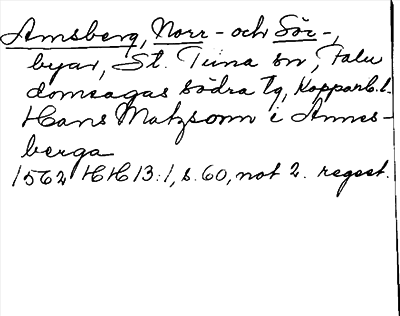 Amsberg, Norr- och Sör-,
byar, St. Tuna sn, Falu
domsagas södra tg, Kopparb. l.
Hans Matzsonn i Annes-
berga
1562 HH 13:1, s. 60, not 2. regest.